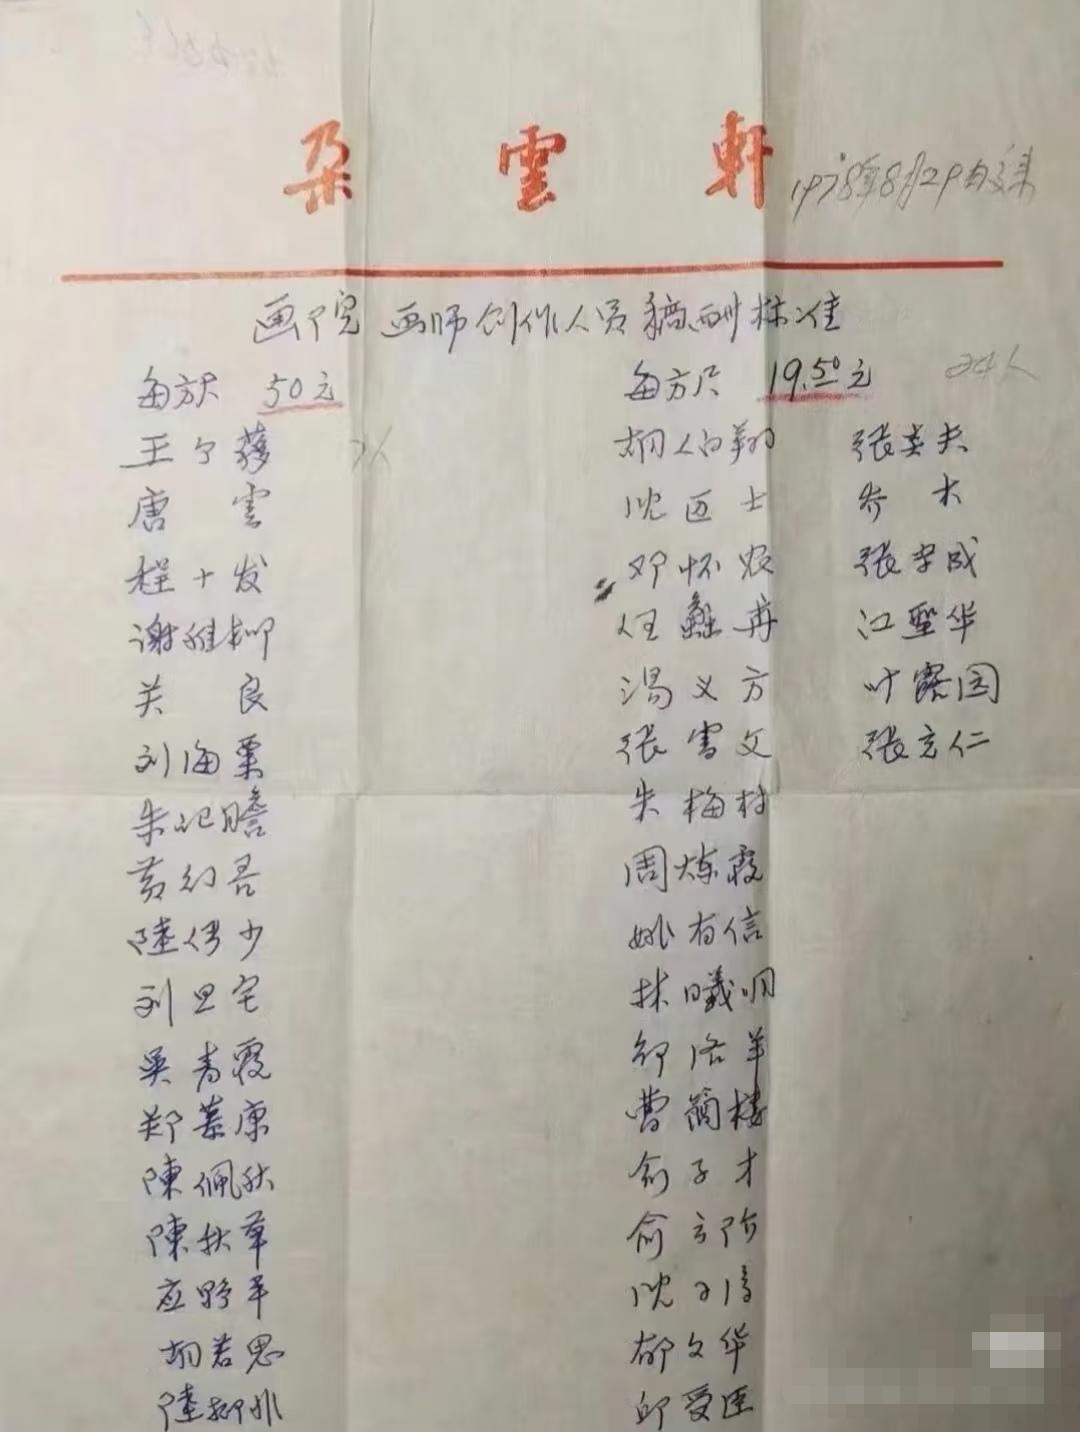 朵雲軒
1978年8月29日
画院画师创作人员稿酬标准
每方尺 50元
王个簃
唐雲
程十发
谢稚柳
关良
刘海粟
朱屺瞻
黄幻吾
陸俨少
刘旦宅
吴青霞
郑慕康
陳佩秋
陳秋草
应野平
胡若思
陸抑非
每方尺 19.50元 24人
胡伯翔 張英夫
沈迈士 乔木
邓怀农 張守成
任蠡甫 江聖华
湯义方 叶露园
張雪父 張充仁
朱梅村
周炼霞
姚有信
林曦明
邵洛羊
曹簡楼
俞子才
俞云阶
沈子丞
郁文华
邱受成